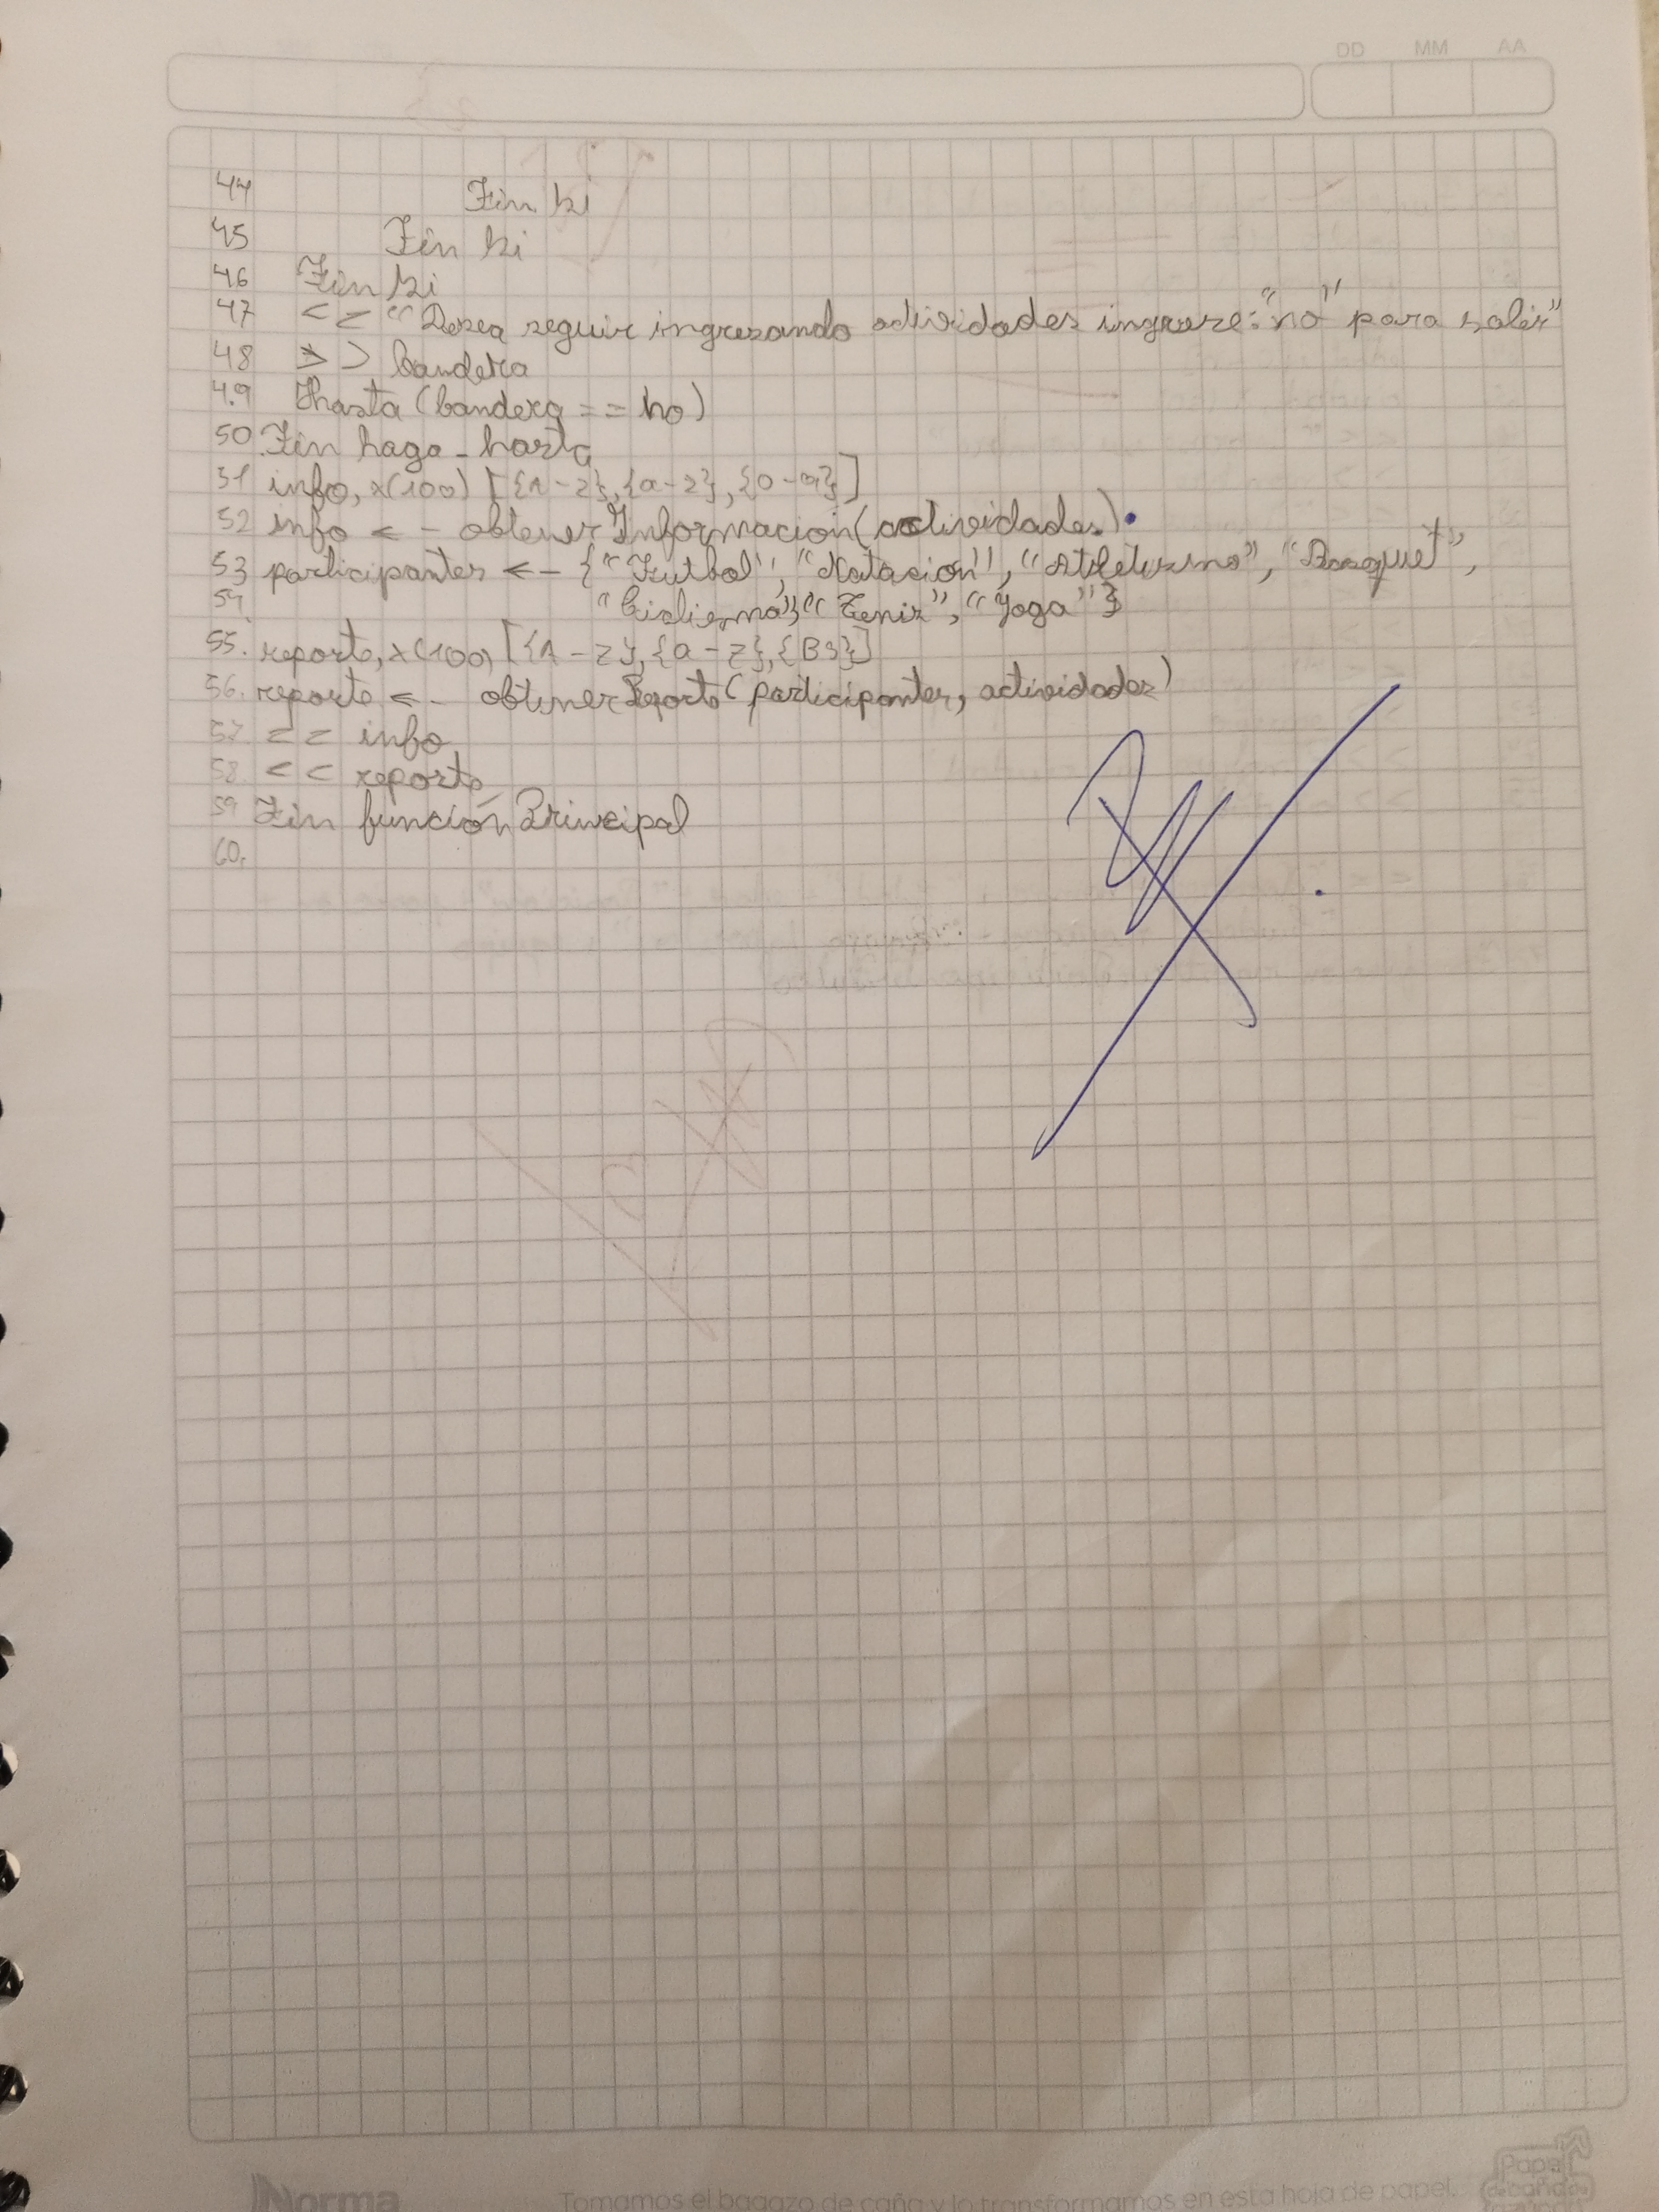 DD MM AA
44 Fin si
45 Fin si
46 Fin si
47 << "Desea seguir ingresando actividades ingrese: "no" para salir"
48 >> bandera
49 Hasta (bandera == no)
50. Fin haga - hasta
51 info, x(100) [{A-Z},{a-z},{0-9}]
52 info <- obtenerInformacion(actividades).
53 participantes <- {"Futbol", "Natacion", "Atletismo", "Basquet",
54. "Ciclismo", "Tenis", "Yoga"}
55. reporte, x(100) [{A-Z},{a-z},{BS}]
56. reporte <- obtenerReporte(participantes, actividades)
57. << info
58. << reporte
59 Fin función Principal
60.
Norma Tomamos el bagazo de caña y lo transformamos en esta hoja de papel.